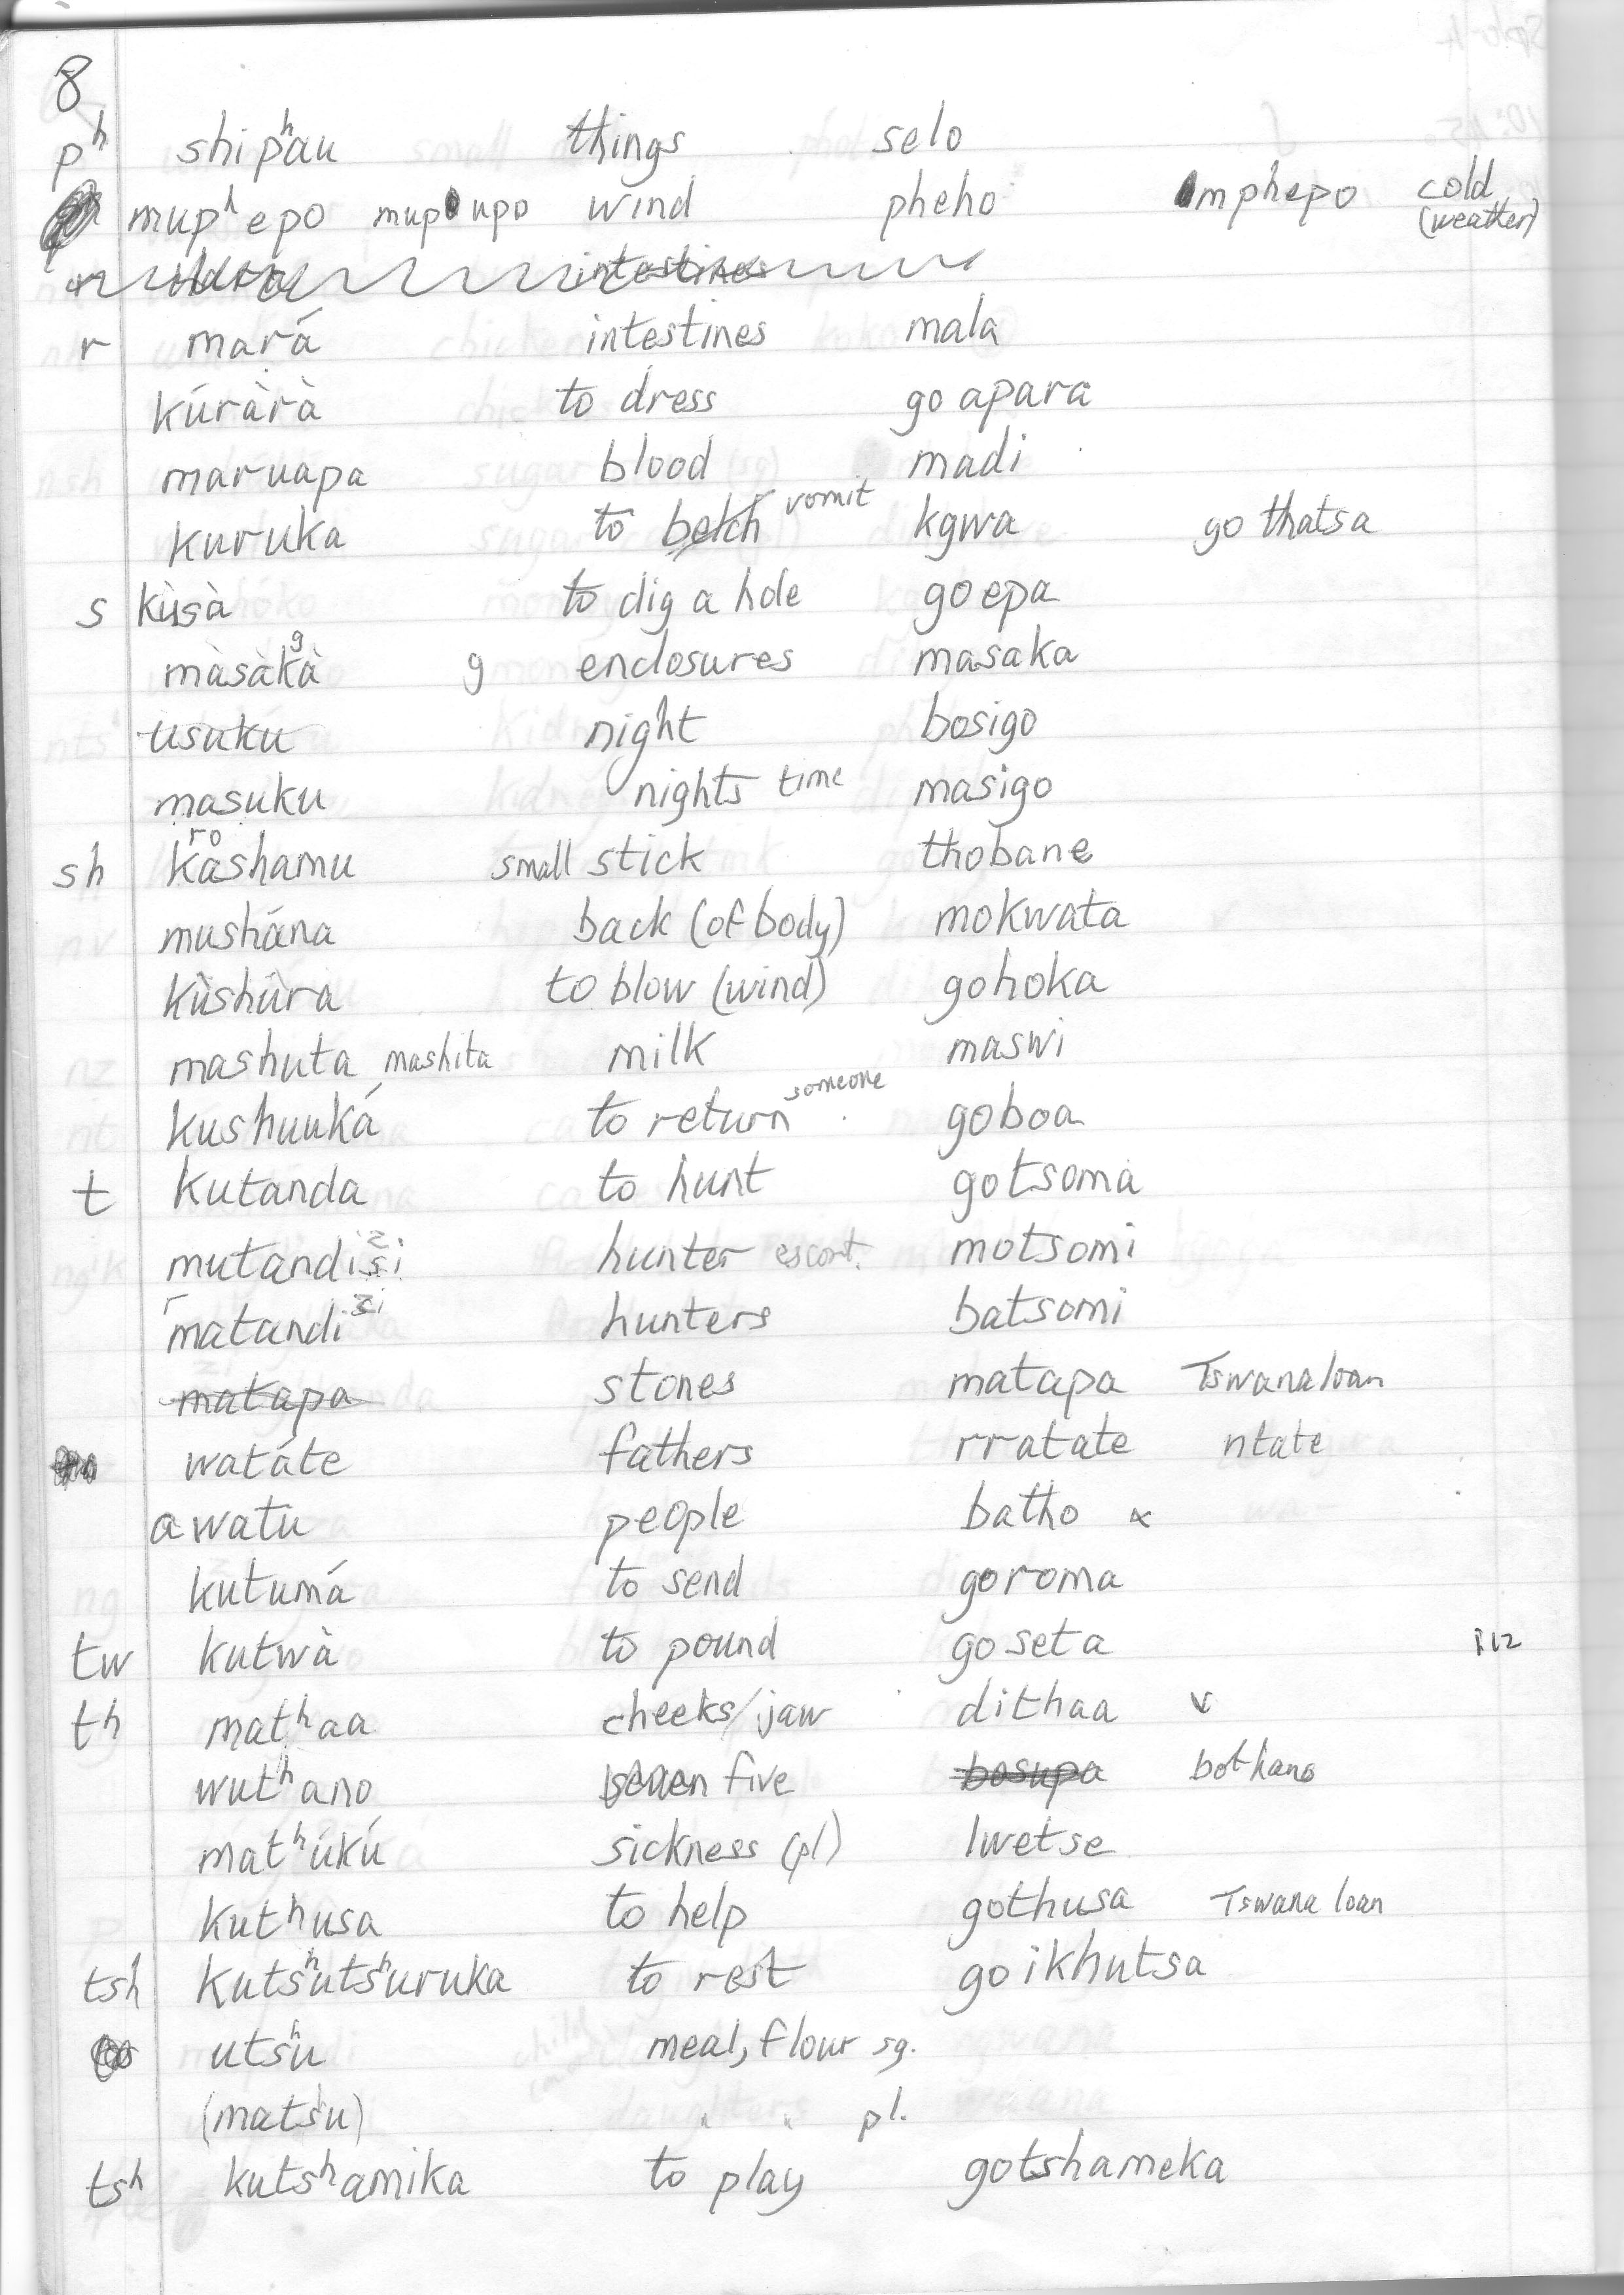 8
pʰ shipʰau things selo
mupʰepo mupupo wind pheho mphepo cold (weather)
intestines
r mará intestines mala
kúràrà to dress go apara
maruapa blood madi
kuruka to belch vomit kgwa go thatsa
s kùsà to dig a hole go epa
màsàkà g g enclosures masaka
usuku night bosigo
masuku nights time masigo
sh kashamu ro small stick thobane
mushána back (of body) mokwata
kùshùra to blow (wind) go hoka
mashuta mashita milk maswi
kushuuká to return someone goboa
t kutanda to hunt go tsoma
mutandisi zi hunter escort. motsomi
r matandi zi hunters batsomi
matapa stones matapa Tswana loan
watáte fathers rratate ntate
awatu people batho x
kutumá to send go roma
tw kutwà to pound go seta
th matʰaa cheeks/jaw dithaa v
wutʰano seven five bosupa bothano
matʰúkú sickness (pl) lwetse
kutʰusa to help gothusa Tswana loan
tsh kutsʰutsʰuruka to rest go ikhutsa
utsʰu meal, flour sg.
(matsu) " " pl.
tsh kutsʰamika to play gotshameka